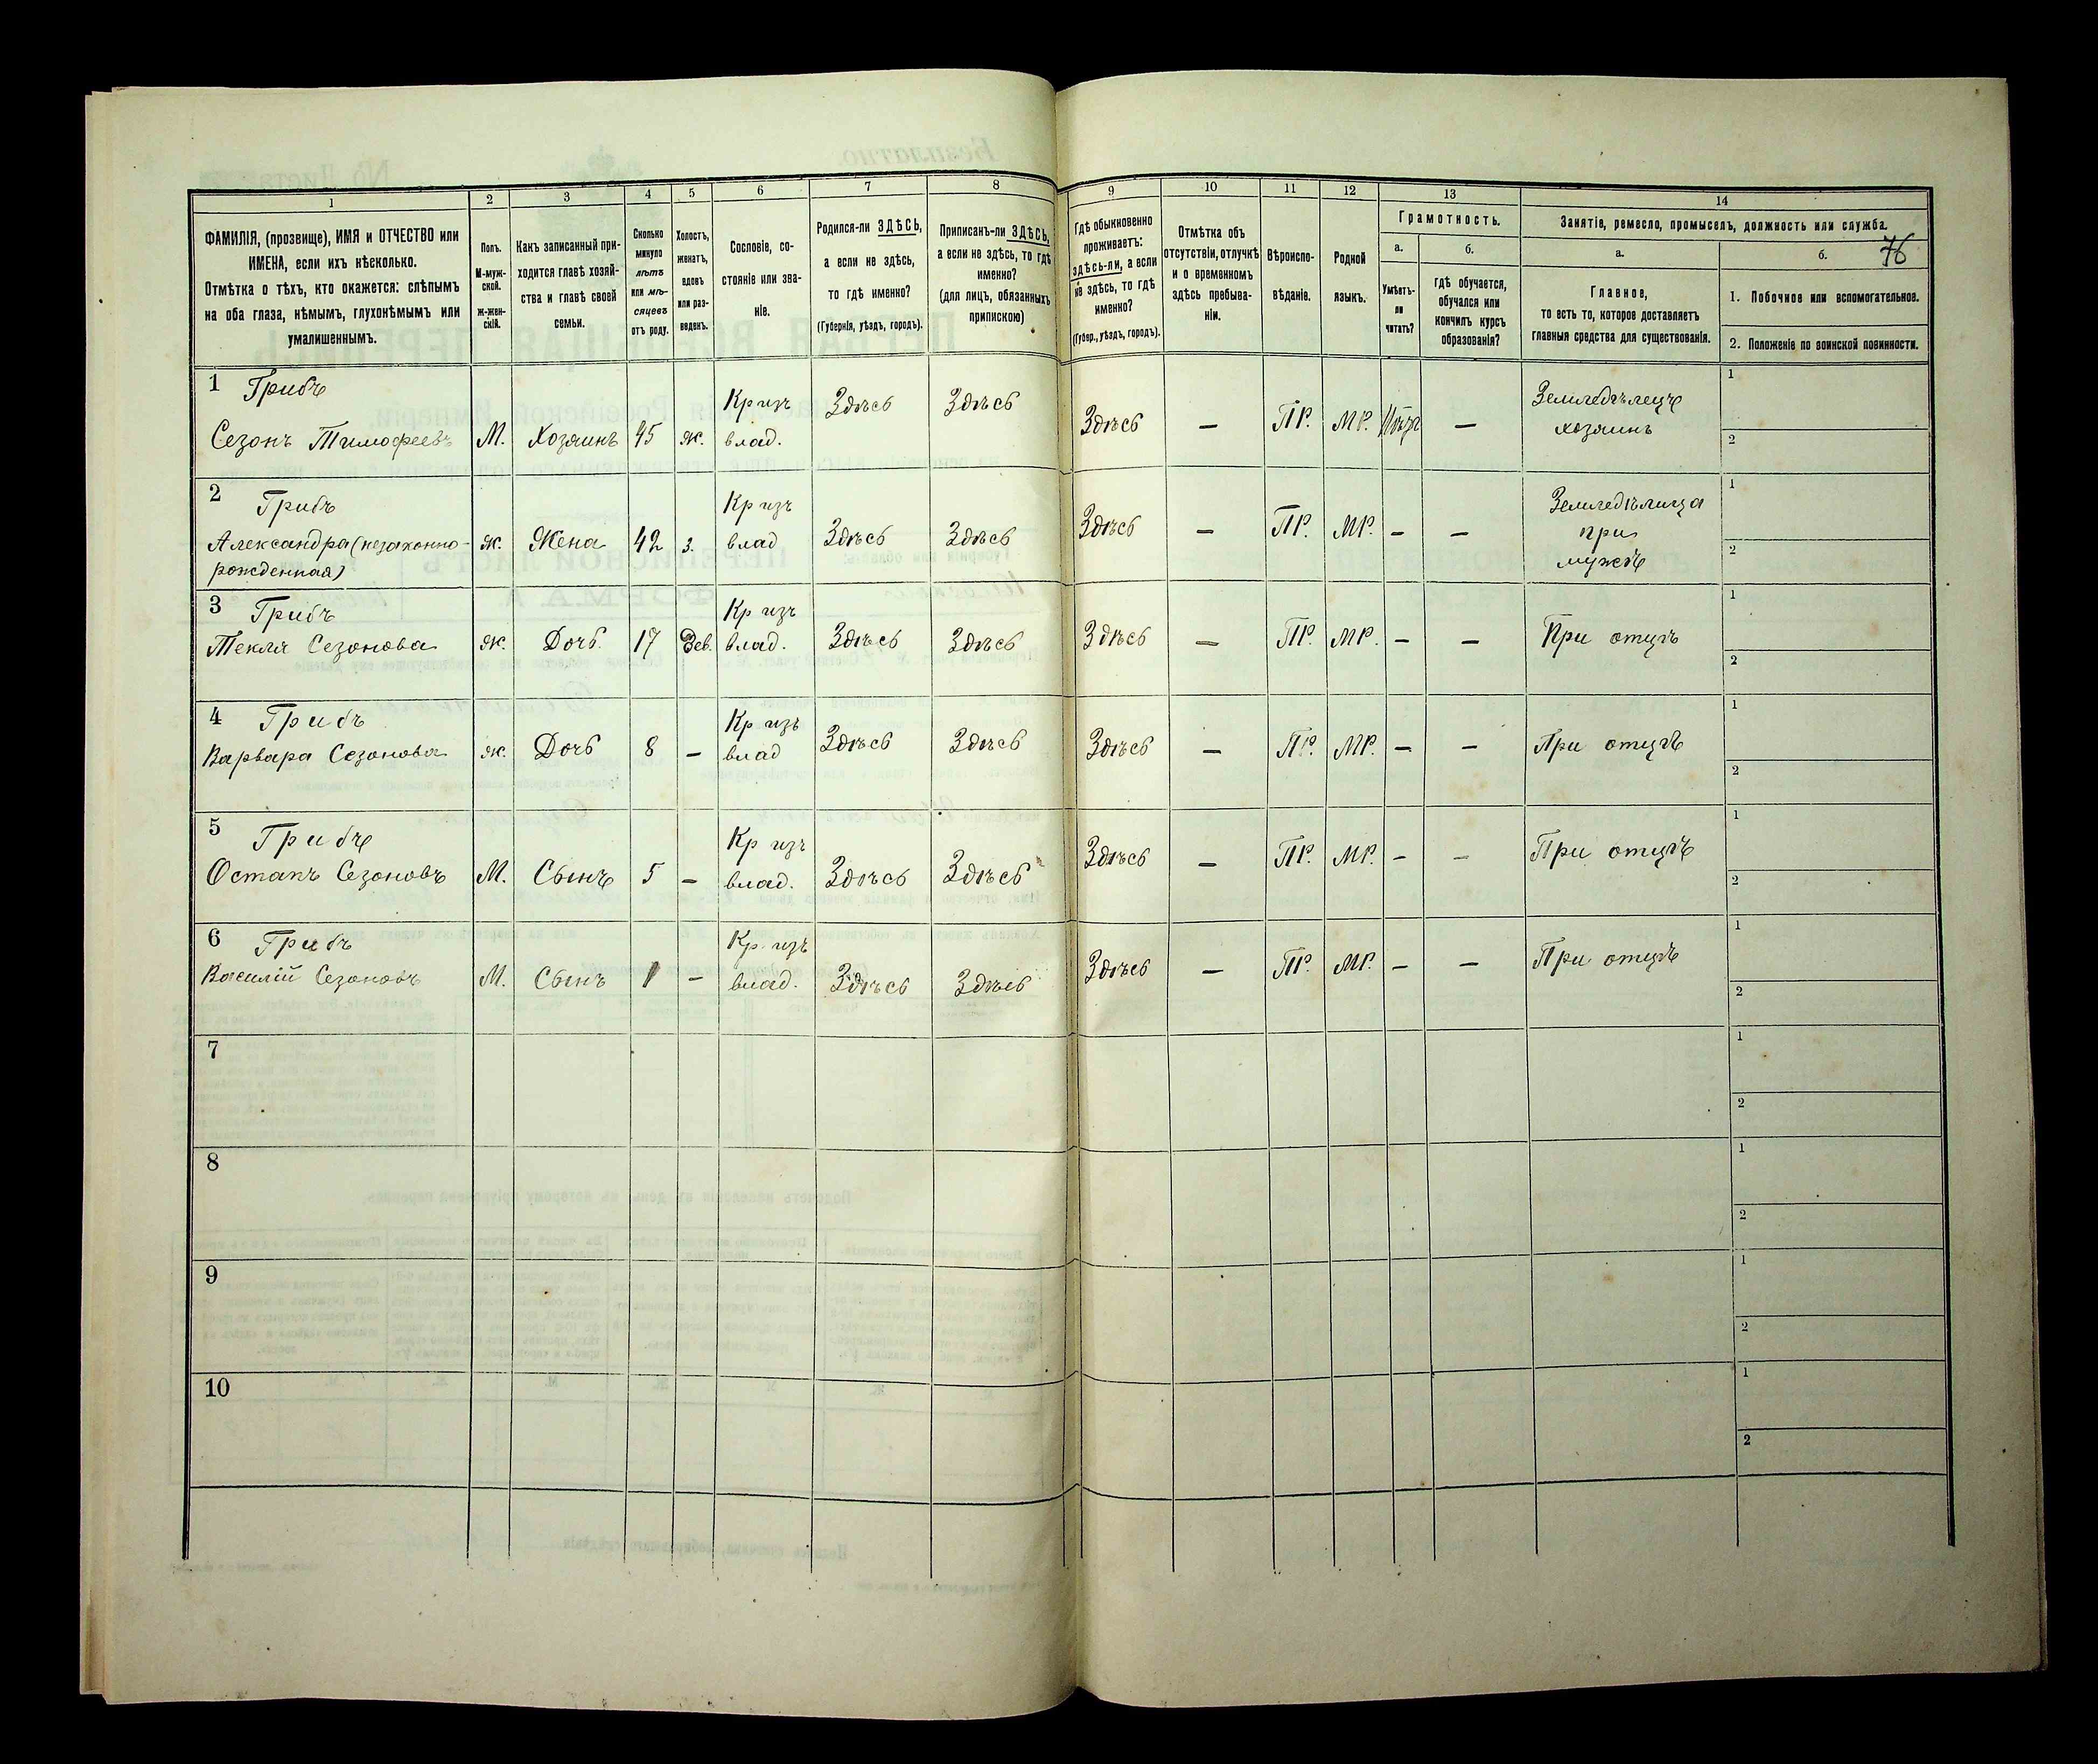 1
2
3
4
5
6
7
8
9
10
11
12
13
14
ФАМИЛІЯ, (прозвище), ИМЯ и ОТЧЕСТВО или
ИМЕНА, если ихъ нѣсколько.
Отмѣтка о тѣхъ, кто окажется: слѣпымъ
на оба глаза, нѣмымъ, глухонѣмымъ или
умалишеннымъ.
Полъ.
М-муж-
ской.
Ж-жен-
скій.
Какъ записанный при-
ходится главѣ хозяй-
ства и главѣ своей
семьи.
Сколько
минуло
лѣтъ
или мѣ-
сяцевъ
отъ роду.
Холостъ,
женатъ,
вдовъ
или раз-
веденъ.
Сословіе, со-
стояніе или зва-
ніе.
Родился-ли ЗДѢСЬ,
а если не здѣсь,
то гдѣ именно?
(Губернія, уѣздъ, городъ).
Приписанъ-ли ЗДѢСЬ,
а если не здѣсь, то гдѣ
именно?
(для лицъ, обязанныхъ
припискою)
Гдѣ обыкновенно
проживаетъ:
здѣсь-ли, а если
не здѣсь, то гдѣ
именно?
(Губер., уѣздъ, городъ).
Отмѣтка объ
отсутствіи, отлучкѣ
и о временномъ
здѣсь пребыва-
ніи.
Вѣроиспо-
вѣданіе.
Родной
языкъ.
Грамотность.
а.
б.
Умѣетъ-
ли
читать?
Гдѣ обучается,
обучался или
кончилъ курсъ
образованія?
Занятіе, ремесло, промыселъ, должность или служба.
а.
б.
76
Главное,
то есть то, которое доставляетъ
главныя средства для существованія.
1. Побочное или вспомогательное.
2. Положеніе по воинской повинности.
1 Грибъ
Сезонъ Тимофеевъ М. Хозяинъ 45 ж. Кр изъ влад. Здѣсь Здѣсь Здѣсь — ПР. МР. — Земледѣлецъ
хозяинъ
1
2
2 Грибъ
Александра (незаконно-
рожденная) ж. Жена 42 з. Кр изъ влад Здѣсь Здѣсь Здѣсь — ПР. МР. — — Земледѣлица
при
мужѣ
1
2
3 Грибъ
Текля Сезонова ж. Дочь. 17 Дев. Кр изъ влад. Здѣсь Здѣсь Здѣсь — ПР. МР. — — При отцѣ
1
2
4 Грибъ
Варвара Сезонова ж. Дочь 8 — Кр изъ влад Здѣсь Здѣсь Здѣсь — ПР. МР. — — При отцѣ
1
2
5 Грибъ
Остапъ Сезоновъ М. Сынъ 5 — Кр изъ влад. Здѣсь Здѣсь Здѣсь — ПР. МР. — — При отцѣ
1
2
6 Грибъ
Василій Сезоновъ М. Сынъ 1 — Кр. изъ влад. Здѣсь Здѣсь Здѣсь — ПР. МР. — — При отцѣ
1
2
7
1
2
8
1
2
9
1
2
10
1
2